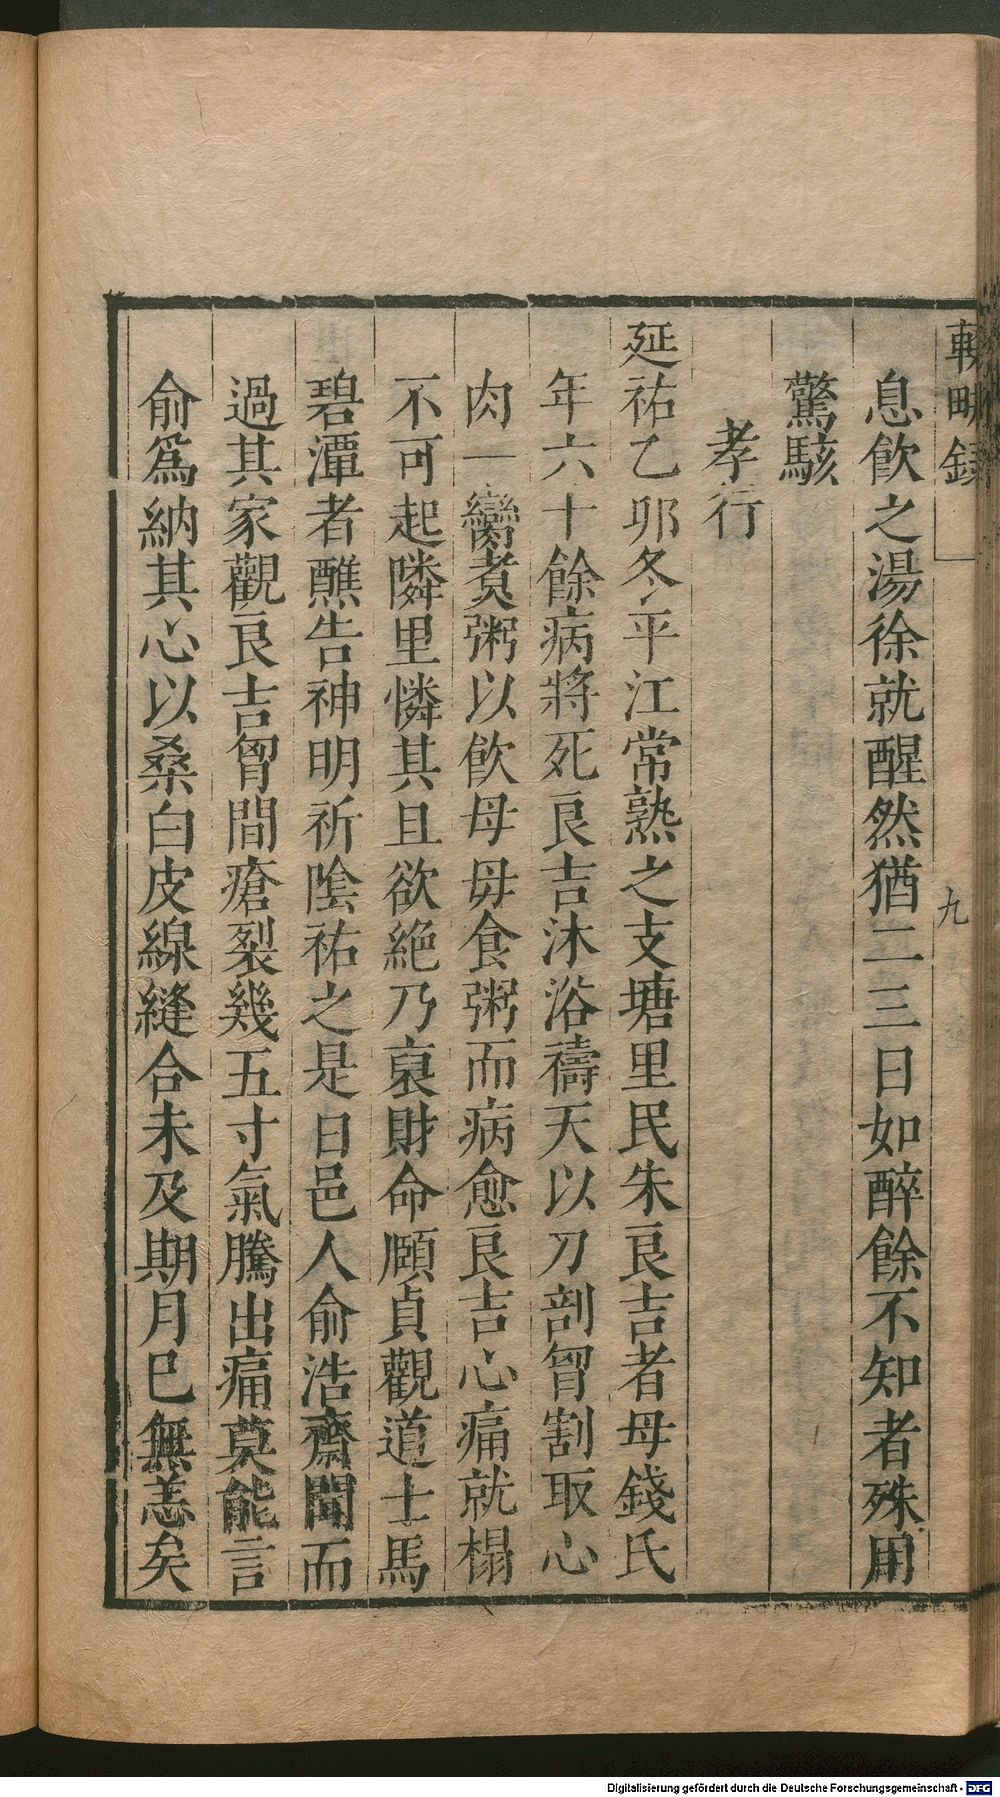 輟畊録
九
息飮之湯徐就醒然猶二三日如醉餘不知者殊用
驚駭
孝行
延祐乙夘冬平江常熟之支塘里民朱良吉者母錢氏
年六十餘病將死良吉沐浴禱天以刀剖胷割取心
肉一臠煑粥以飮母母食粥而病愈良吉心痛就榻
不可起隣里憐其且欲絶乃裒財命願貞觀道士馬
碧潭者醮告神明祈隂祐之是日邑人俞浩齋聞而
過其家觀良吉胷間瘡裂幾五寸氣騰出痛莫能言
俞爲納其心以桑白皮線縫合未及期月巳無恙矣
Digitalisierung gefördert durch die Deutsche Forschungsgemeinschaft - DFG